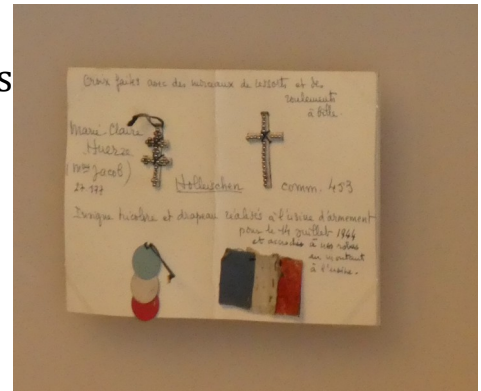 s
Croix faites avec des morceaux de ressorts et de
roulements
à bille.
Marie-Claire
Huerre
(Mme Jacob)
27 177
Holleischen comm. 453
Insigne tricolore et drapeau réalisés à l'usine d'armement
pour le 14 juillet 1944
et accrochés à nos robes
en rentrant
à l'usine.